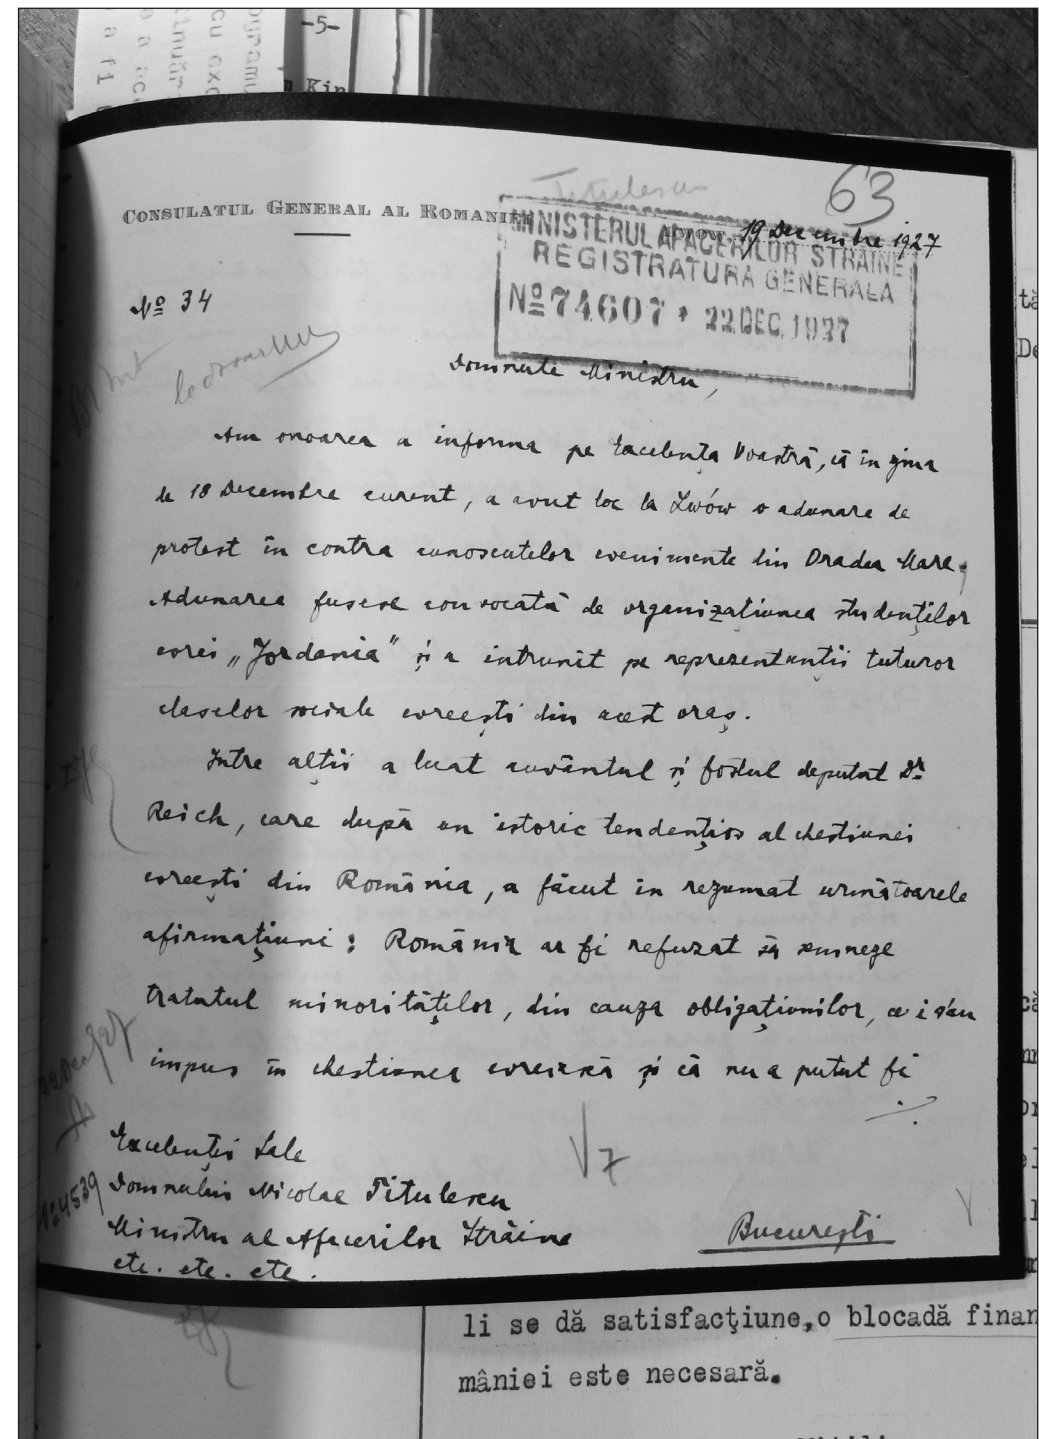 -5-
Kin
63
Titulescu
CONSULATUL GENERAL AL ROMANIEI
19 Decembre 1927
MINISTERUL AFACERILOR STRAINE
REGISTRATURA GENERALA
№ 74607 * 22 DEC. 1927
№ 34
Domnule Ministru,
Am onoarea a informa pe Excelența Voastră, că în ziua
de 18 Decembre curent, a avut loc la Lwów o adunare de
protest în contra cunoscutelor evenimente din Oradea Mare.
Adunarea fusese convocată de organizațiunea studenților
evrei „Jordania" și a întrunit pe reprezentanții tuturor
claselor sociale evreești din acest oraș.
Între alții a luat cuvântul și fostul deputat Dr.
Reich, care după un istoric tendențios al chestiunei
evreești din România, a făcut în rezumat următoarele
afirmațiuni: România ar fi refuzat să semneze
tratatul minorităților, din cauza obligațiunilor, ce i s'au
impus în chestiunea evreiască și că nu a putut fi
./.
Excelenței Sale
Domnului Nicolae Titulescu
Ministru al Afacerilor Străine
etc. etc. etc.
București
№ 4539
li se dă satisfacţiune,o blocadă finan
mâniei este necesară.